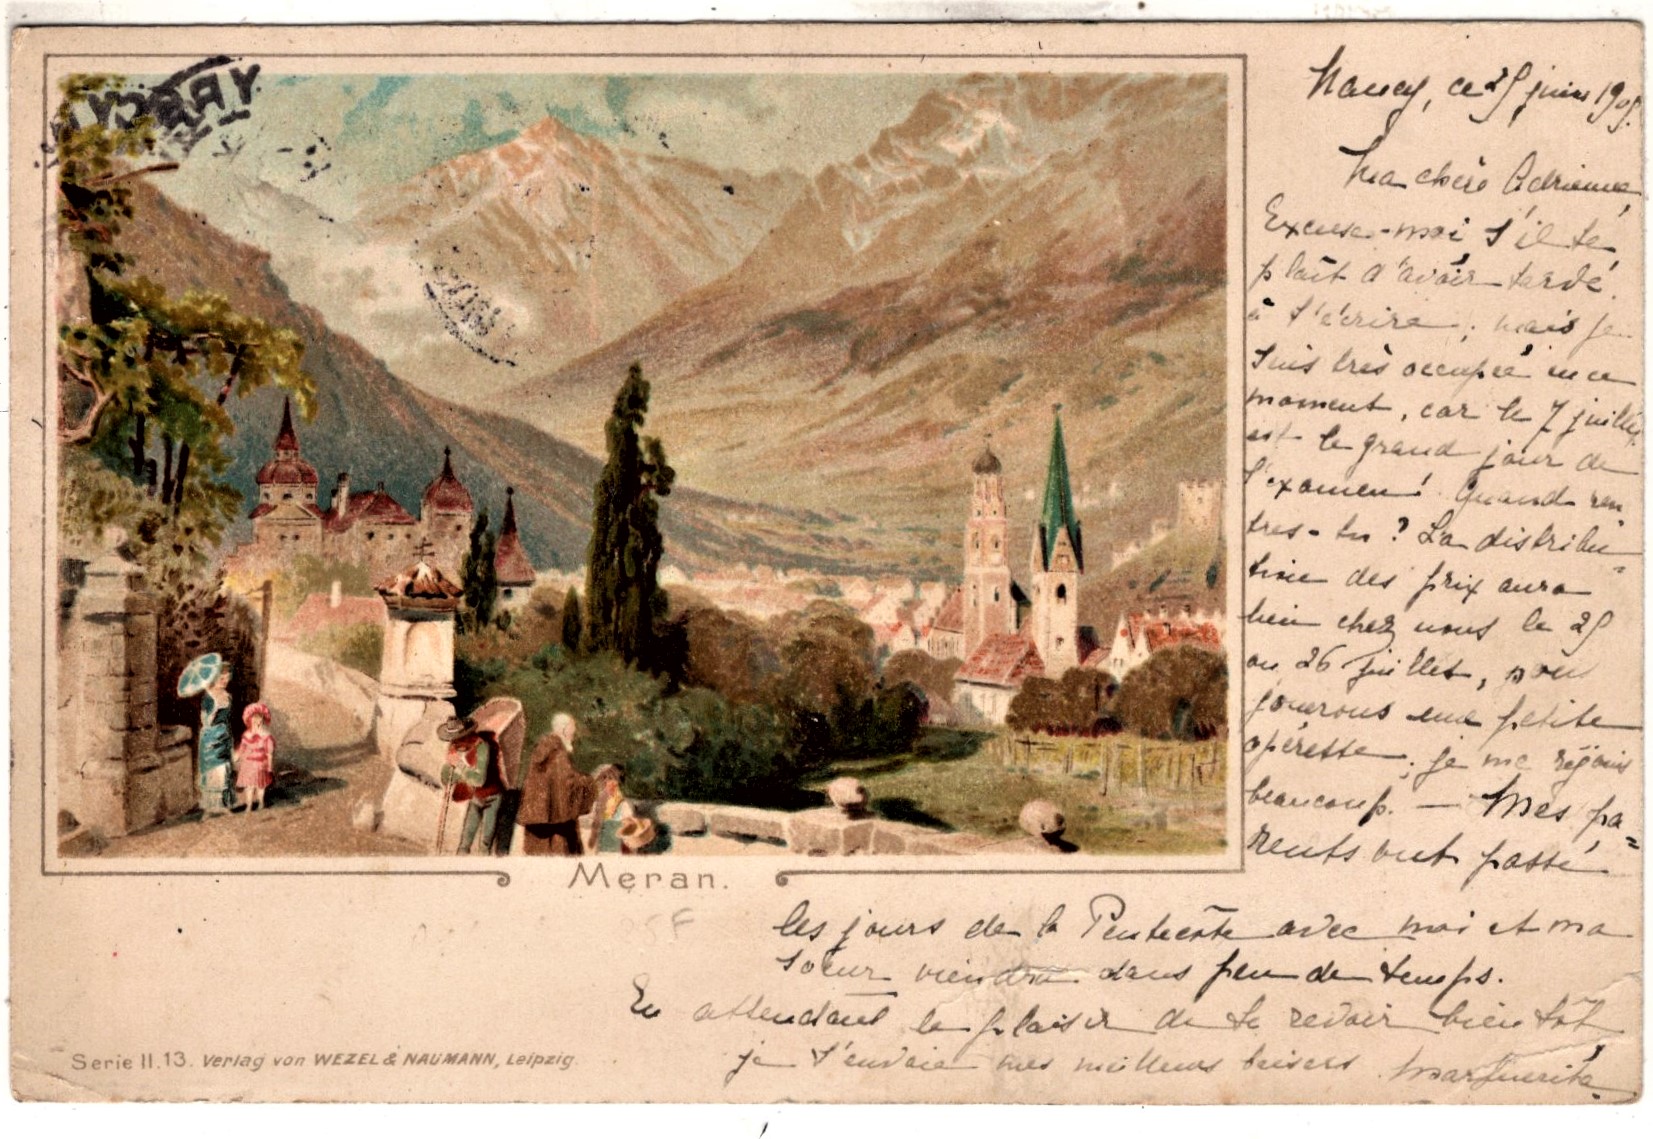 Nancy, ce 25 juin 1905.
Ma chère Adrienne,
Excuse-moi s'il te
plaît d'avoir tardé
à t'écrire, mais je
suis très occupée en ce
moment, car le 7 juillet
est le grand jour de
l'examen! Quand ren
tres-tu? La distribu=
tion des prix aura
lieu chez nous le 25
ou 26 juillet, nous
jouerons une petite
opérette, je me réjouis
beaucoup. — Mes pa=
rents ont passé
les jours de la Pentecôte avec moi et ma
soeur viendra dans peu de temps.
En attendant le plaisir de te revoir bientôt
je t'envoie mes meilleurs baisers. Marguerite
Meran.
Serie II.13. Verlag von WEZEL & NAUMANN, Leipzig.